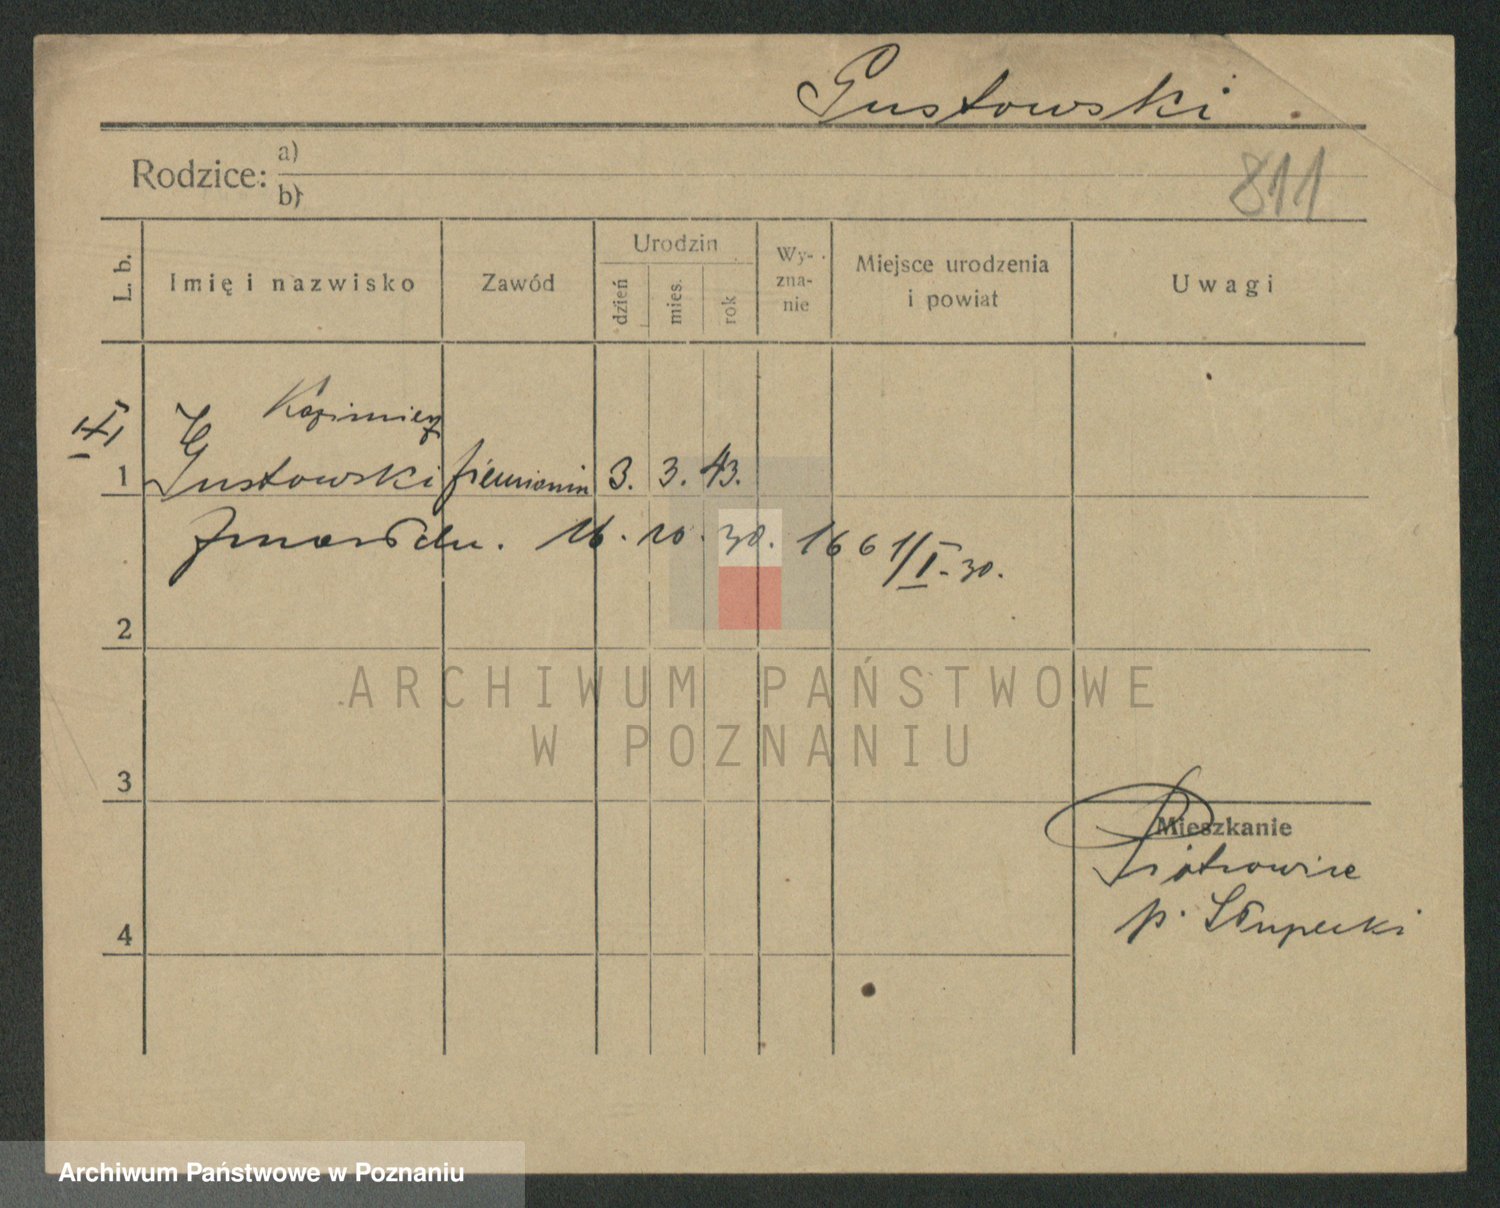 Gustowski
Rodzice: a)
b)
811
L. b.
Imię i nazwisko
Zawód
Urodzin
dzień
mies.
rok
Wy-
zna-
nie
Miejsce urodzenia
i powiat
Uwagi
Kazimierz
1 Gustowski ziemianin 3. 3. 43.
Zmarł dn. 16. 10. 30. 1661/I-30.
2
ARCHIWUM PAŃSTWOWE
W POZNANIU
3
Mieszkanie
Piotrowice
p. Słupecki
4
Archiwum Państwowe w Poznaniu